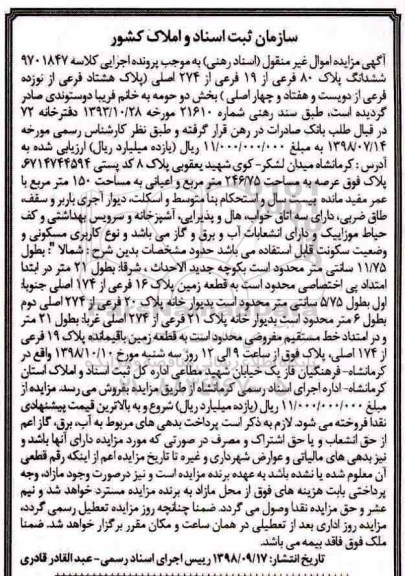 سازمان ثبت اسناد و املاک کشور
آگهی مزایده اموال غیر منقول (اسناد رهنی) به موجب پرونده اجرایی کلاسه ۹۷۰۱۸۴۷
ششدانگ پلاک ۸۰ فرعی از ۱۹ فرعی از ۲۷۴ اصلی (پلاک هشتاد فرعی از نوزده
فرعی از دویست و هفتاد و چهار اصلی) بخش دو حومه به خانم فریبا دوستوندی صادر
گردیده است، طبق سند رهنی شماره ۲۱۶۱۰ مورخه ۱۳۹۳/۱۰/۲۸ دفترخانه ۷۲
در قبال طلب بانک صادرات در رهن قرار گرفته و طبق نظر کارشناس رسمی مورخه
۱۳۹۸/۰۷/۱۴ به مبلغ ۱۱/۰۰۰/۰۰۰/۰۰۰ ریال (یازده میلیارد ریال) ارزیابی شده به
آدرس: کرمانشاه میدان لشکر- کوی شهید یعقوبی پلاک ۸ کد پستی ۶۷۱۴۷۴۴۵۹۴،
پلاک فوق عرصه به مساحت ۲۴۶/۷۵ متر مربع و اعیانی به مساحت ۱۵۰ متر مربع با
عمر مفید مانده بیست سال و استحکام بنا متوسط و اسکلت، دیوار آجری باربر و سقف،
طاق ضربی، دارای سه اتاق خواب، هال و پذیرایی، آشپزخانه و سرویس بهداشتی و کف
حیاط موزاییک و دارای انشعابات آب و برق و گاز می باشد و نوع کاربری مسکونی و
وضعیت سکونت قابل استفاده می باشد حدود مشخصات بدین شرح: شمالا ": بطول
۱۱/۷۵ سانتی متر محدود است بکوچه جدید الاحداث، شرقا: بطول ۲۱ متر در ابتدا
امتداد پی اختصاصی محدود است به قطعه زمین پلاک ۱۶ فرعی از ۱۷۴ اصلی جنوبا:
اول بطول ۵/۷۵ سانتی متر محدود است بدیوار خانه پلاک ۲۰ فرعی از ۲۷۴ اصلی دوم
بطول ۶ متر محدود است بدیوار خانه پلاک ۲۱ فرعی از ۲۷۴ اصلی غربا: بطول ۲۱ متر
و در امتداد خط مستقیم مفروضی محدود است به قطعه زمین باقیمانده پلاک ۱۹ فرعی
از ۱۷۴ اصلی، پلاک فوق از ساعت ۹ الی ۱۲ روز سه شنبه مورخ ۱۳۹۸/۱۰/۱۰ واقع در
کرمانشاه- فرهنگیان فاز یک خیابان شهید مطاعی اداره کل ثبت اسناد و املاک استان
کرمانشاه- اداره اجرای اسناد رسمی کرمانشاه از طریق مزایده بفروش می رسد. مزایده از
مبلغ ۱۱/۰۰۰/۰۰۰/۰۰۰ ریال (یازده میلیارد ریال) شروع و به بالاترین قیمت پیشنهادی
نقدا فروخته می شود. لازم به ذکر است پرداخت بدهی های مربوط به آب، برق، گاز اعم
از حق انشعاب و یا حق اشتراک و مصرف در صورتی که مورد مزایده دارای آنها باشد و
نیز بدهی های مالیاتی و عوارض شهرداری و غیره تا تاریخ مزایده اعم از اینکه رقم قطعی
آن معلوم شده یا نشده باشد به عهده برنده مزایده است و نیز درصورت وجود مازاد، وجه
پرداختی بابت هزینه های فوق از محل مازاد به برنده مزایده مسترد خواهد شد و نیم
عشر و حق مزایده نقدا وصول می گردد. ضمنا چنانچه روز مزایده تعطیل رسمی گردد،
مزایده روز اداری بعد از تعطیلی در همان ساعت و مکان مقرر برگزار خواهد شد. ضمنا
ملک فوق فاقد بیمه می باشد.
تاریخ انتشار: ۱۳۹۸/۰۹/۱۷ رییس اجرای اسناد رسمی- عبدالقادر قادری